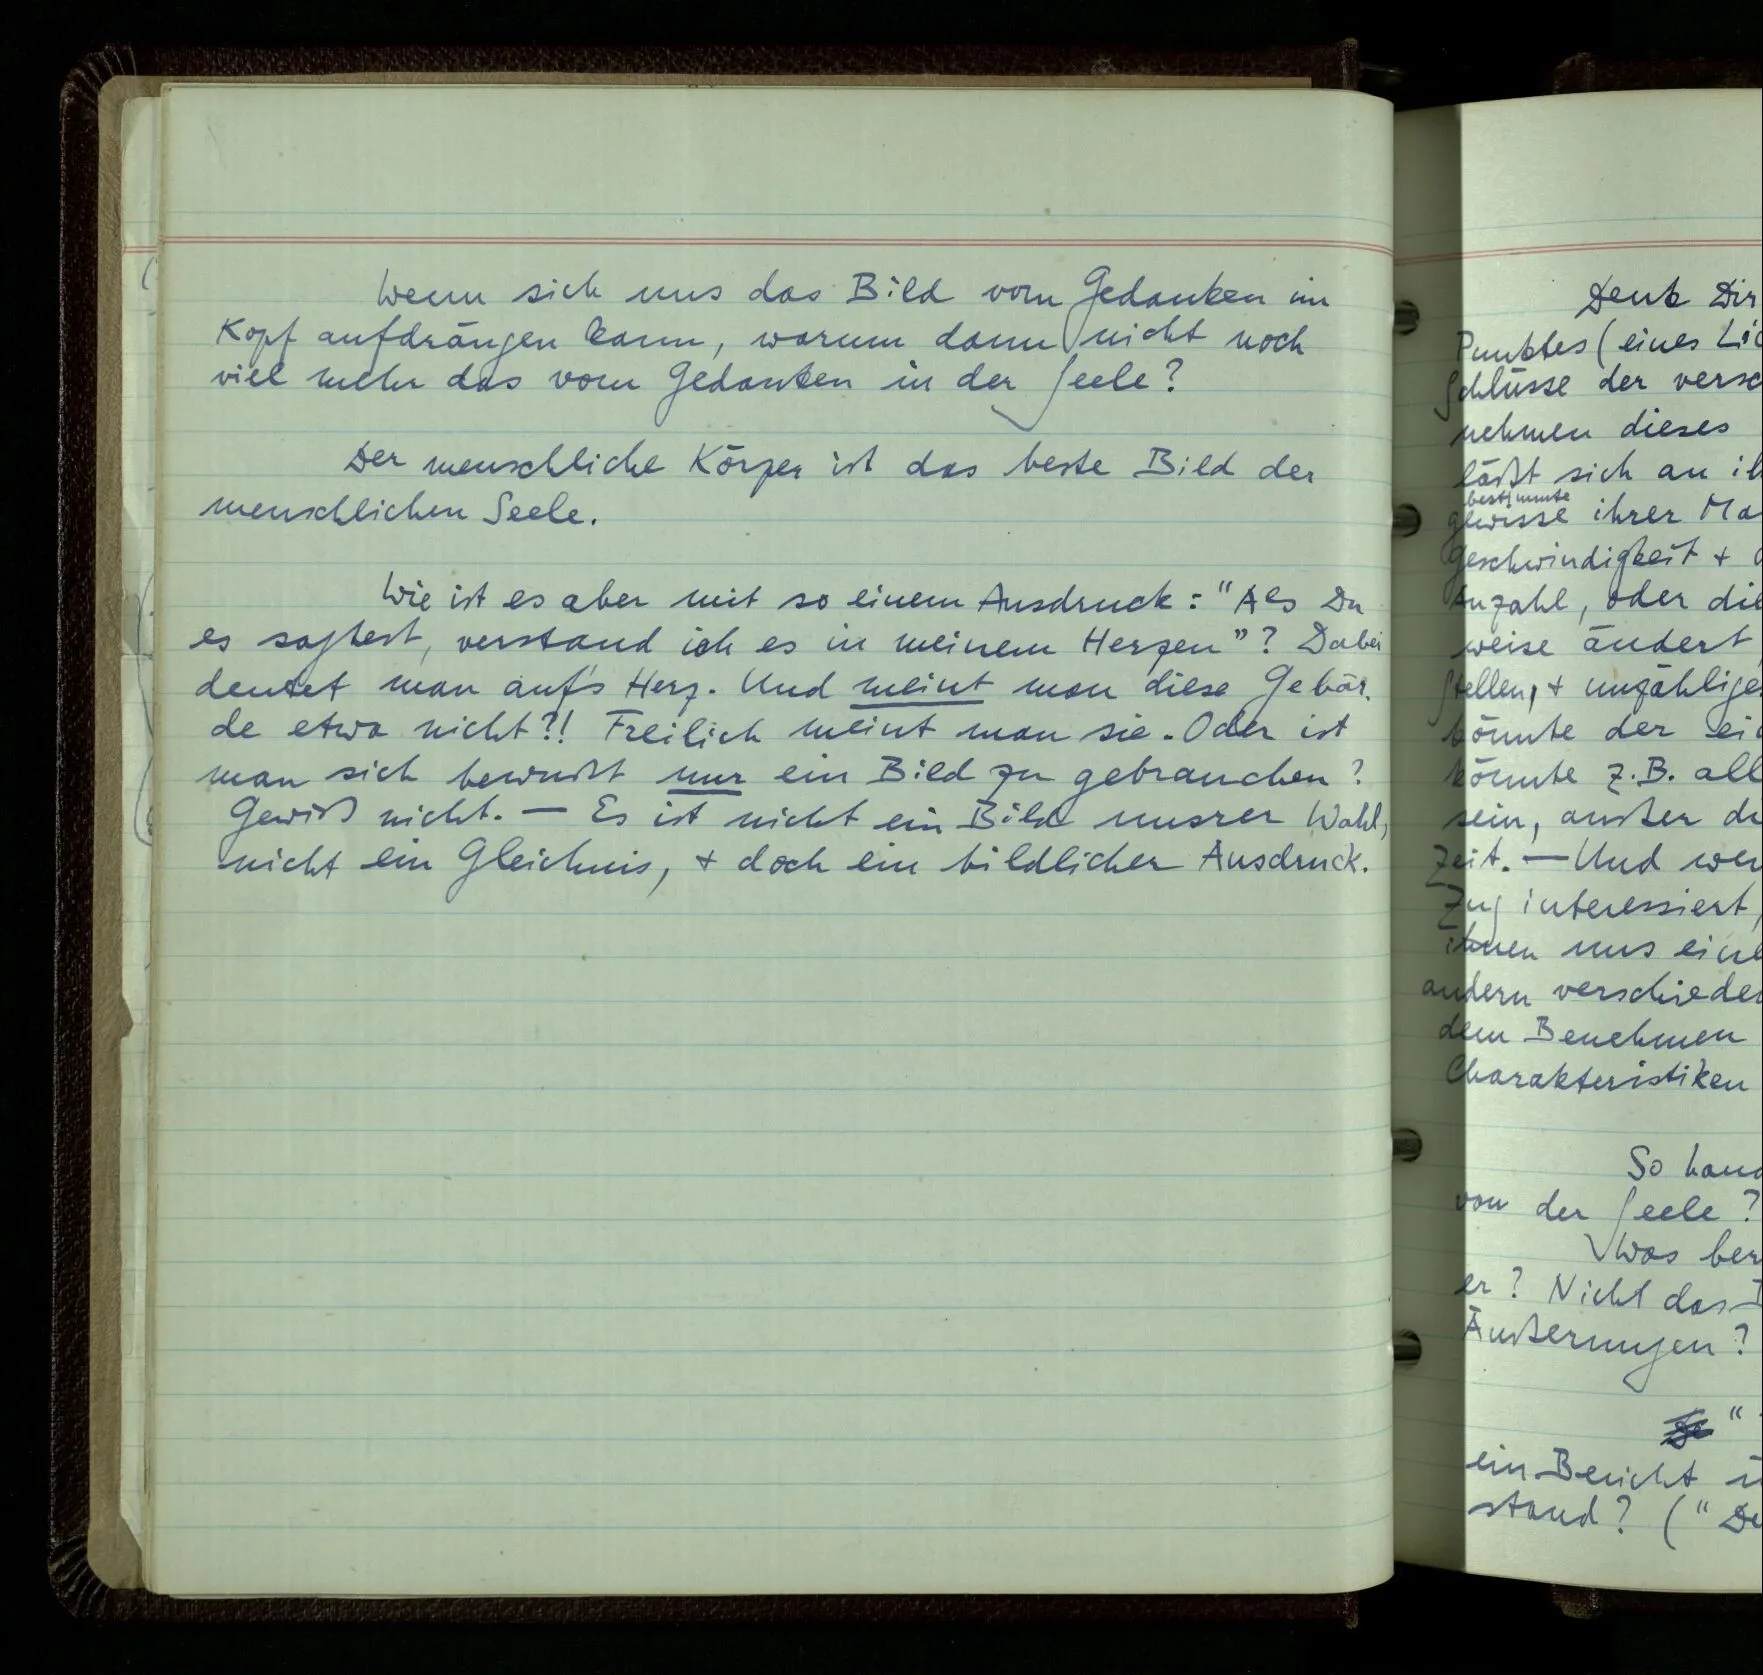 Wenn sich uns das Bild vom Gedanken im
Kopf aufdrängen kann, warum dann nicht noch
viel mehr das vom Gedanken in der Seele?
Der menschliche Körper ist das beste Bild der
menschlichen Seele.
Wie ist es aber mit so einem Ausdruck: "Als Du
es sagtest, verstand ich es in meinem Herzen"? Dabei
deutet man auf's Herz. Und meint man diese Gebär-
de etwa nicht?! Freilich meint man sie. Oder ist
man sich bewußt nur ein Bild zu gebrauchen?
Gewiß nicht. — Es ist nicht ein Bild unsrer Wahl,
nicht ein Gleichnis, + doch ein bildlicher Ausdruck.
Denk Dir
Punktes (eines
Schlüsse der
nehmen dieses
läßt sich an
bestimmte
gewisse ihrer
Geschwindigkeit +
Anzahl, oder die
weise ändert
stellen, + unzählige
könnte der
könnte z.B.
sein, außer
Zeit. — Und
Zug interessiert,
ihnen uns
andern
dem Benehmen
Charakteristiken
So
von der Seele?
Was
er? Nicht das
Äußerungen?
"
ein Bericht
stand? ("